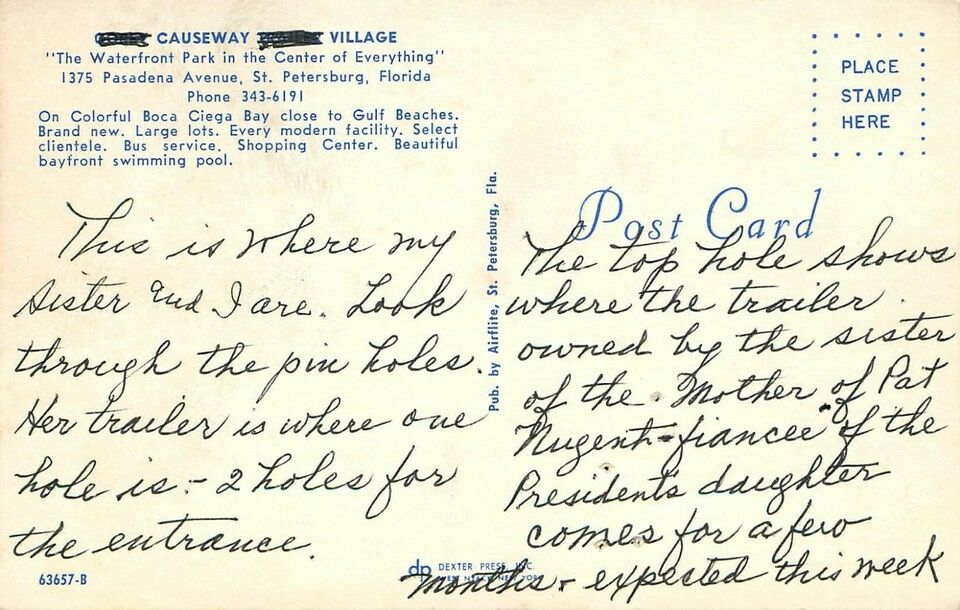 CAUSEWAY VILLAGE
"The Waterfront Park in the Center of Everything"
1375 Pasadena Avenue, St. Petersburg, Florida
Phone 343-6191
On Colorful Boca Ciega Bay close to Gulf Beaches.
Brand new. Large lots. Every modern facility. Select
clientele. Bus service, Shopping Center. Beautiful
bayfront swimming pool.
This is where my
sister and I are. Look
through the pin holes.
Her trailer is where one
hole is - 2 holes for
the entrance.
63657-B
Pub. by Airflite, St. Petersburg, Fla.
PLACE
STAMP
HERE
Post Card
The top hole shows
where the trailer
owned by the sister
of the Mother of Pat
Nugent-fiancee of the
Presidents daughter
comes for a few
months & expected this week
dp DEXTER PRESS, INC.
WEST NYACK, NEW YORK